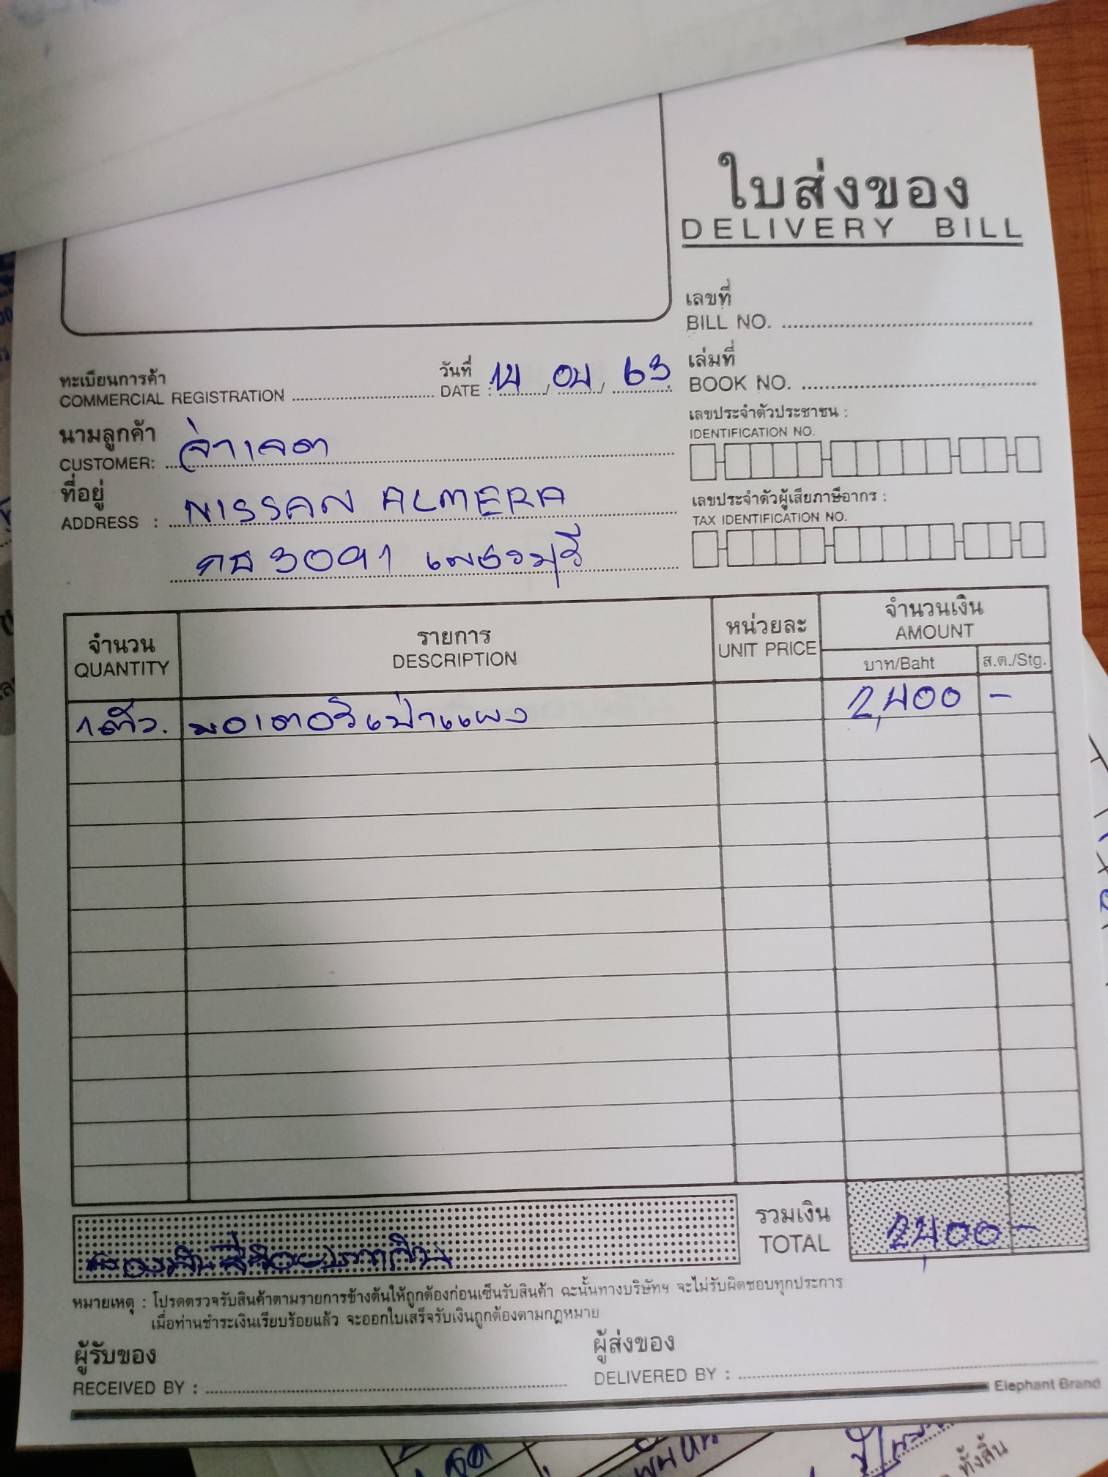 ใบส่งของ
DELIVERY BILL
เลขที่
BILL NO.
ทะเบียนการค้า
COMMERCIAL REGISTRATION
วันที่
DATE : 14 / 04 / 63
เล่มที่
BOOK NO.
นามลูกค้า
CUSTOMER: จ่าเจต
เลขประจำตัวประชาชน :
IDENTIFICATION NO.
ที่อยู่
ADDRESS : NISSAN ALMERA
3091 เพชรบุรี
เลขประจำตัวผู้เสียภาษีอากร :
TAX IDENTIFICATION NO.
จำนวน
QUANTITY
รายการ
DESCRIPTION
หน่วยละ
UNIT PRICE
จำนวนเงิน
AMOUNT
บาท/Baht
ส.ต./Stg.
1 ตัว. มอเตอร์เป่าแผง 2,400 -
สองพันสี่ร้อยบาทถ้วน
รวมเงิน
TOTAL
2,400 -
หมายเหตุ : โปรดตรวจรับสินค้าตามรายการข้างต้นให้ถูกต้องก่อนเซ็นรับสินค้า ฉะนั้นทางบริษัทฯ จะไม่รับผิดชอบทุกประการ
เมื่อท่านชำระเงินเรียบร้อยแล้ว จะออกใบเสร็จรับเงินถูกต้องตามกฎหมาย
ผู้รับของ
RECEIVED BY :
ผู้ส่งของ
DELIVERED BY :
Elephant Brand
ทั้งสิ้น